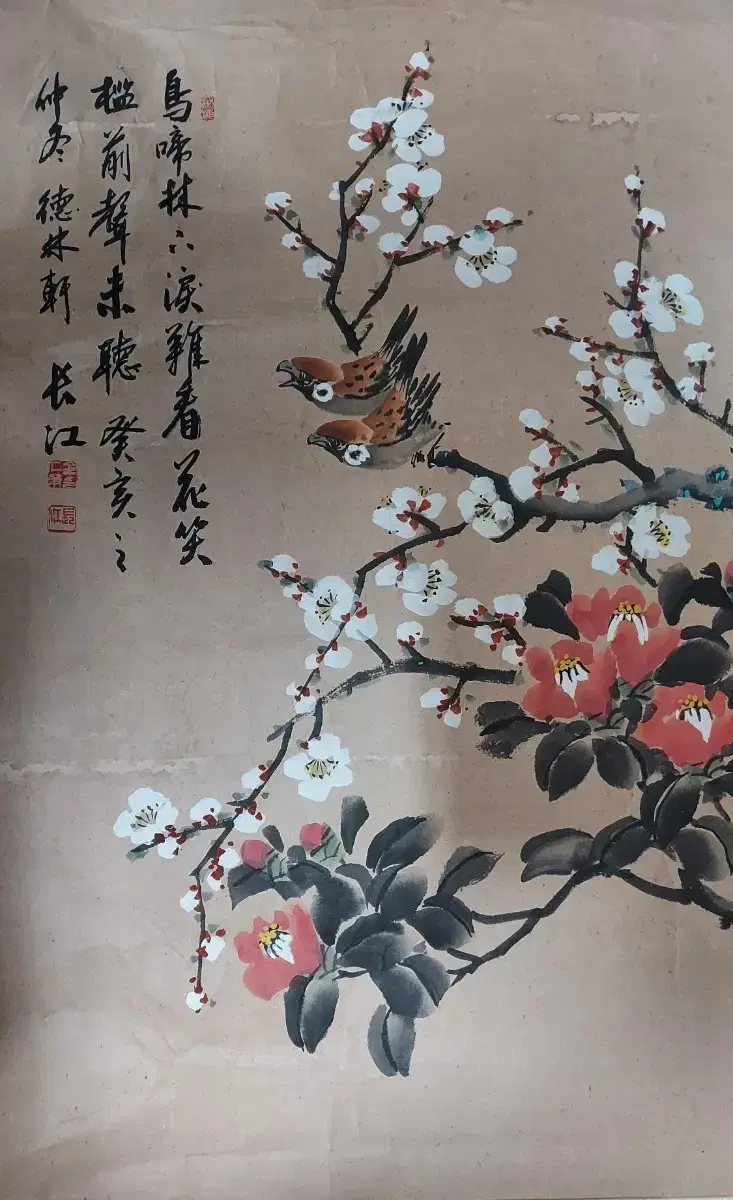 鳥啼林下淚難看花笑
檻前聲未聽 癸亥之
仲冬 德林軒 長江